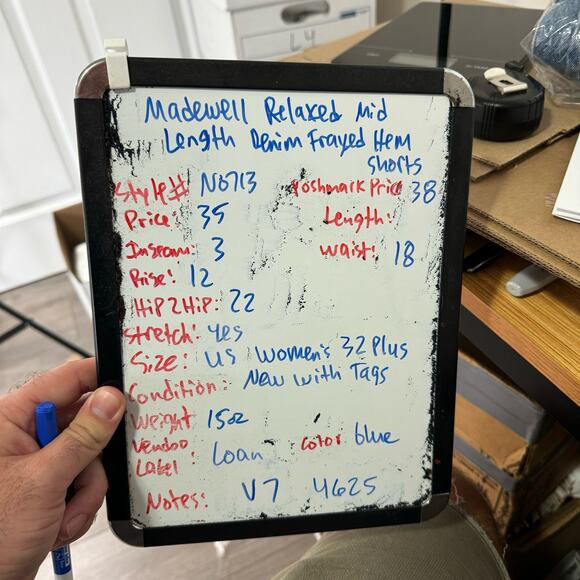 Madewell Relaxed Mid
Length Denim Frayed Hem
Shorts
Style# N0713 Poshmark Price 38
Price: 35 Length:
Inseam: 3 Waist: 18
Rise: 12
Hip 2 Hip: 22
Stretch: yes
Size: US Women's 32 Plus
Condition: New with Tags
Weight 15oz
Vendoo Label: Loan Color blue
Notes: V7 4625